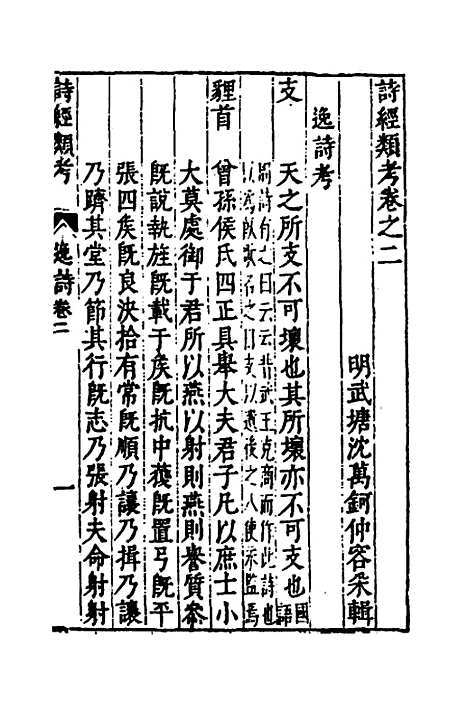 詩經類考卷之二
明武塘沈萬鈳仲容釆輯
逸詩考
支　天之所支不可壞也其所壞亦不可支也國語
詩句之曰云云昔武王克商而作此詩也
以為飫歌名之曰支以遺後之人使永監焉
貍首　曾孫侯氏四正具舉大夫君子凡以庶士小
大莫處御于君所以燕以射則燕則譽質參
既說執旌既載于侯既抗中獲既置弓既平
張四侯既良決拾有常既順乃讓乃揖乃讓
乃隮其堂乃節其行既志乃張射夫命射射
詩經類考　逸詩卷二　一